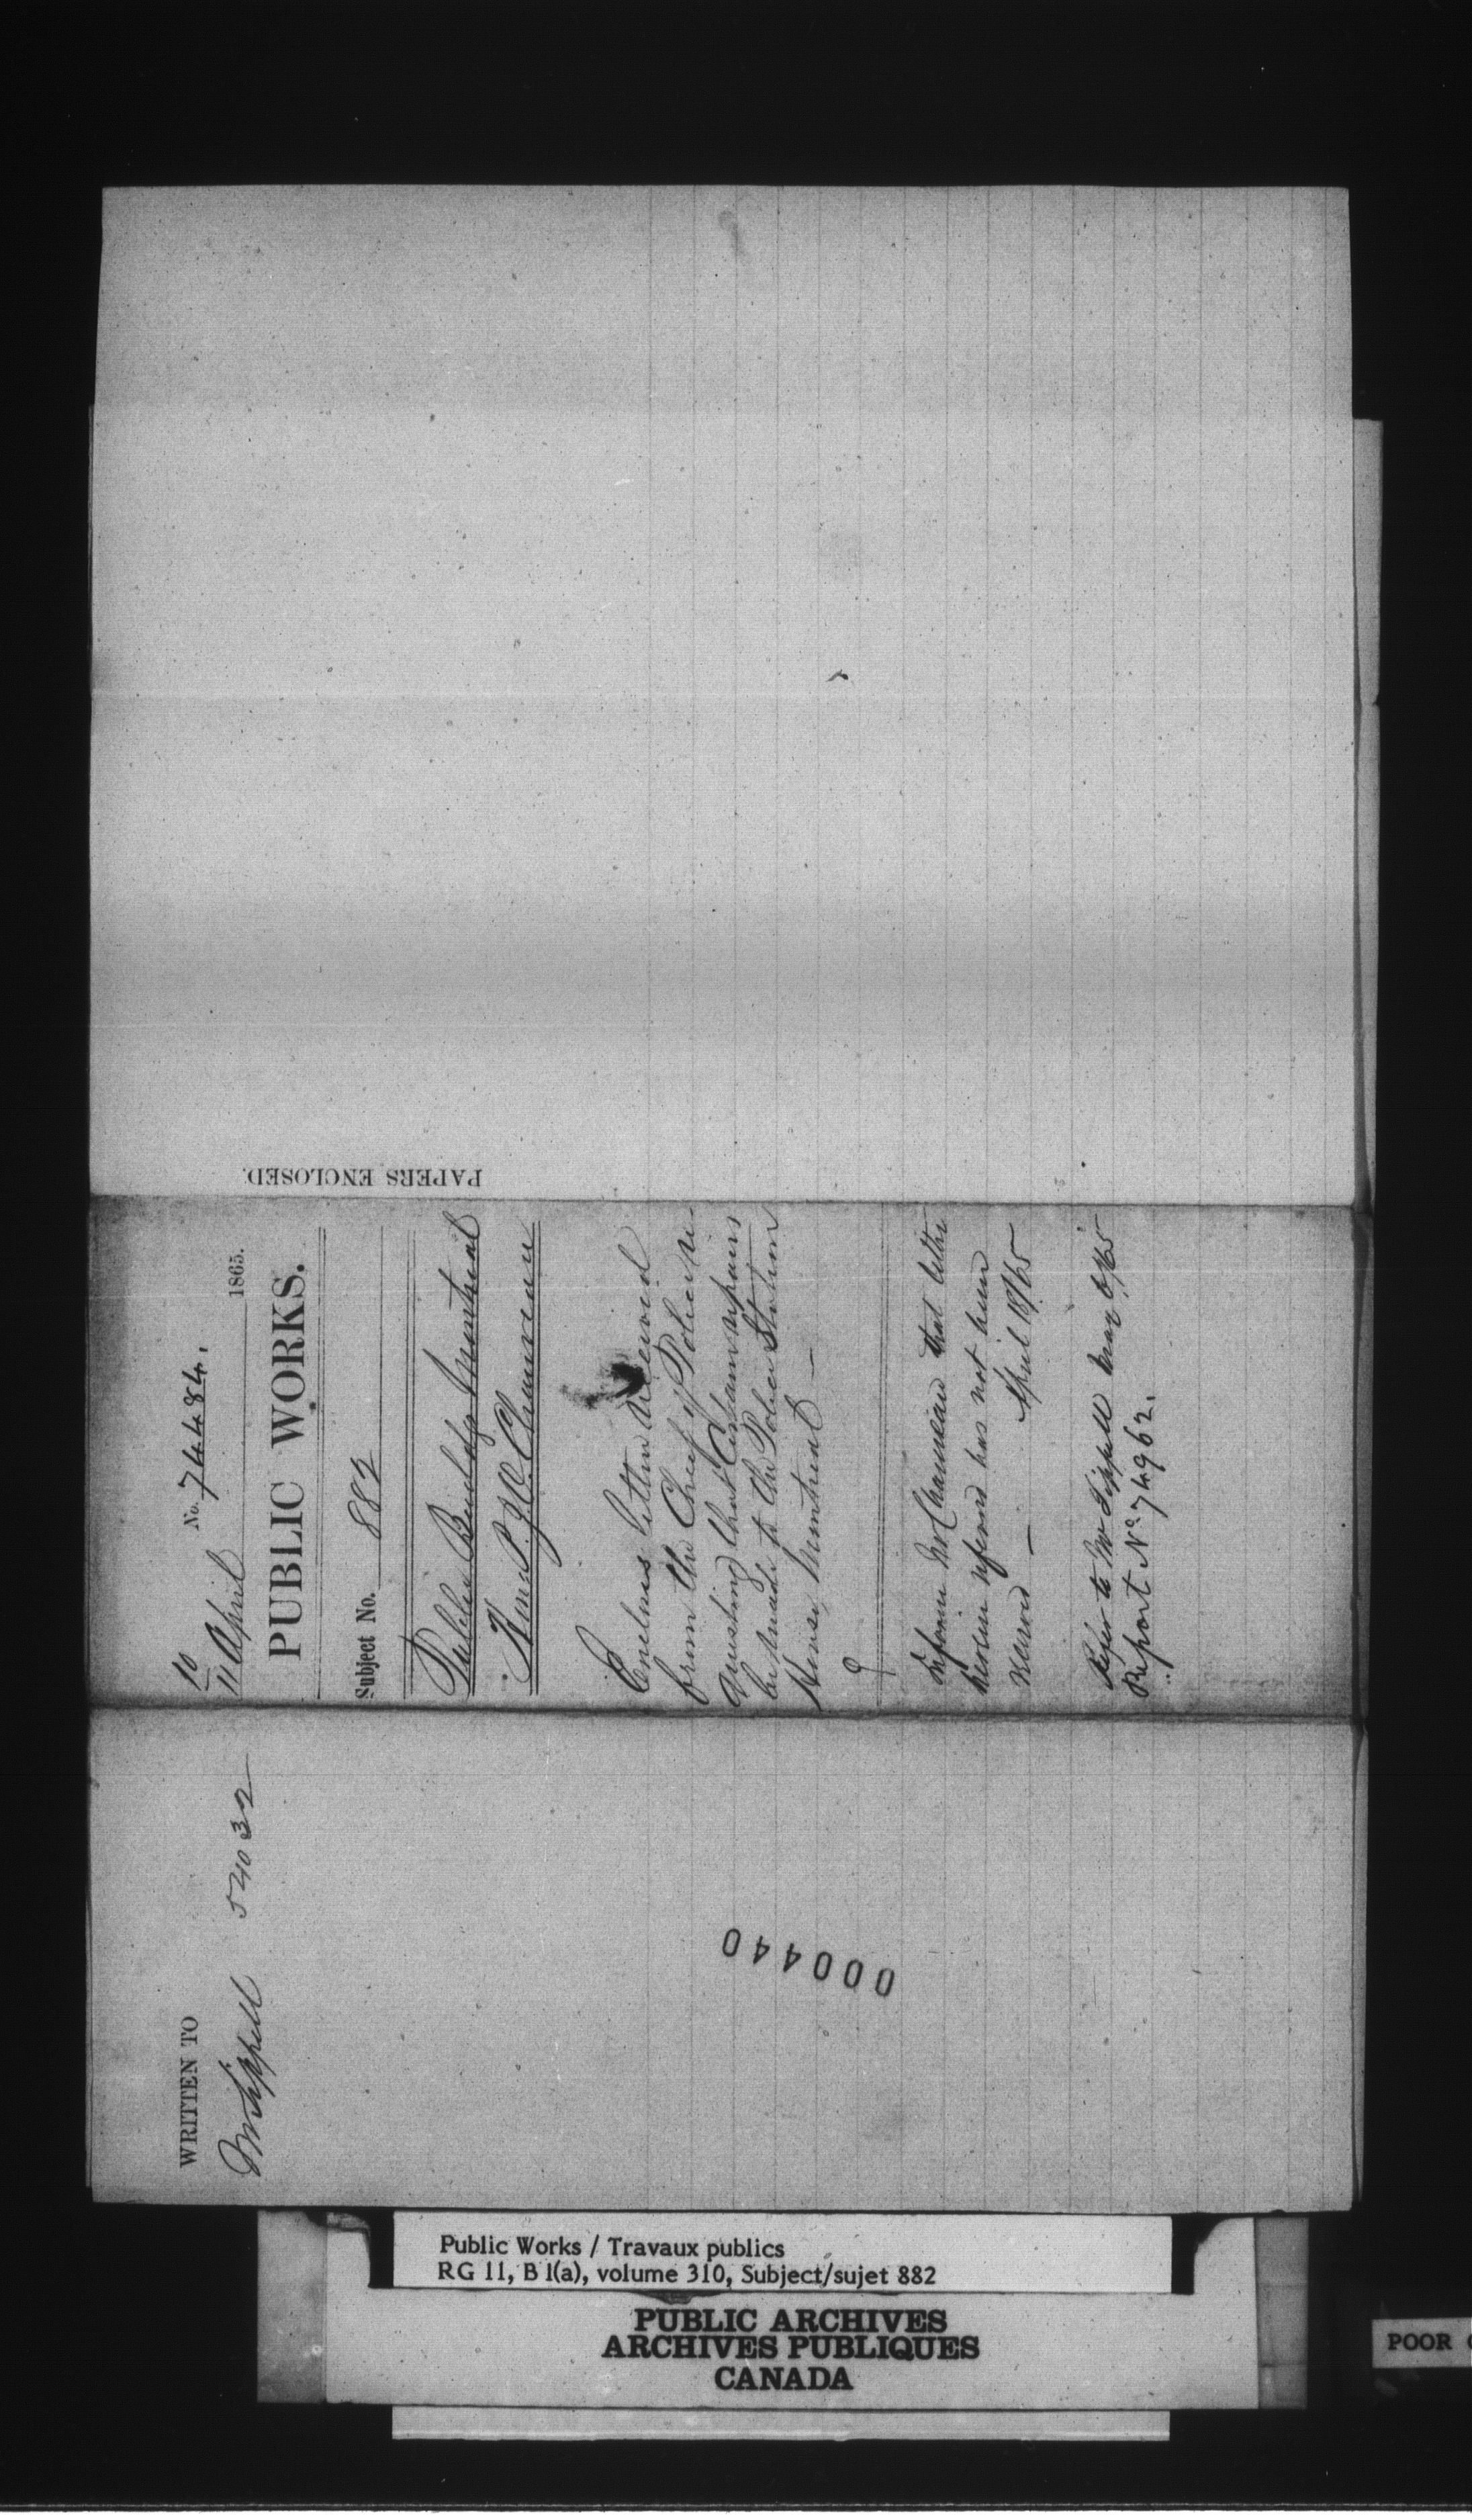 No. 74484.
10
11 April 1865.
PUBLIC WORKS.
Subject No. 882
Public Buildg Montreal
Hon. P. J. O. Chauveau
Encloses letter received
from the Chief of Police re-
questing that Certain repairs
be made to the Police Station
House, Montreal —
Inform Mr Chauveau that letter
herein referred has not been
received — April 18/65
Refer to Mr Sippell May 6/65
Report No. 74962.
PAPERS ENCLOSED.
WRITTEN TO
Mr Sippell 54032
000440
Public Works / Travaux publics
RG 11, B 1(a), volume 310, Subject/sujet 882
PUBLIC ARCHIVES
ARCHIVES PUBLIQUES
CANADA
POOR